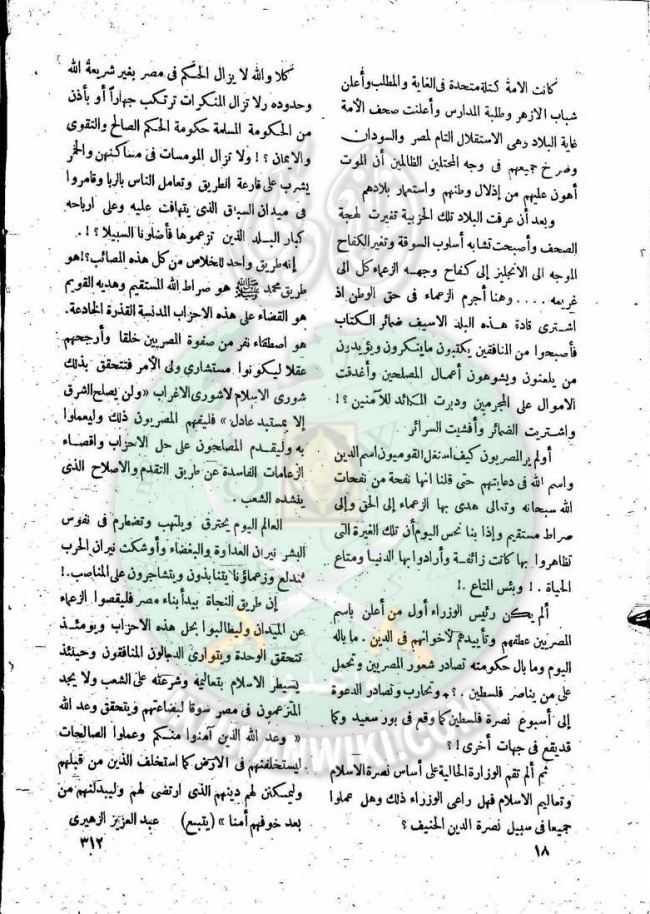 كانت الامة كتلة متحدة فى الغاية والمطلب وأعلن
شباب الازهر وطلبة المدارس وأعلنت صحف الأمة
غاية البلاد وهى الاستقلال التام لمصر والسودان
وصرخ جميعهم فى وجه المحتلين الظالمين أن الموت
أهون عليهم من إذلال وطنهم واستعمار بلادهم
وبعد أن عرفت البلاد تلك الحزبية تغيرت لهجة
الصحف وأصبحت تشابه أسلوب السوقة وتغير الكفاح
الموجه الى الانجليز إلى كفاح وجهه الزعماء كل الى
غريمه .... وهنا أجرم الزعماء فى حق الوطن اذ
اشترى قادة هذه البلد الاسيف ضمائر الكتاب
فأصبحوا من المنافقين يكتبون ما ينكرون ويؤيدون
من يلعنون ويشوهون أعمال المصلحين وأغدقت
الاموال على المجرمين ودبرت المكائد للآمنين ؟!
واشتريت الضمائر وأفشيت السرائر
أولم ير المصريون كيف استغل القوميون اسم الدين
واسم الله فى دعايتهم حتى قلنا انها نفحة من نفحات
الله سبحانه وتعالى هدى بها الزعماء إلى الحق وإلى
صراط مستقيم وإذا بنا نحس اليوم أن تلك الغيرة التى
تظاهروا بها كانت زائفة وأرادوا بها الدنيا ومتاع
الحياة . ! وبئس المتاع . !
ألم يكن رئيس الوزراء أول من أعلن باسم
المصريين عطفهم وتأييدهم لأخوانهم فى الدين . ما باله
اليوم وما بال حكومته تصادر شعور المصريين وتحمل
على من يناصر فلسطين . ؟ وتحارب وتصادر الدعوة
إلى أسبوع نصرة فلسطين كما وقع فى بور سعيد وكما
قد يقع فى جهات أخرى ! ؟
ثم ألم تقم الوزارة الحالية على أساس نصرة الاسلام
وتعاليم الاسلام فهل راعى الوزراء ذلك وهل عملوا
جميعا فى سبيل نصرة الدين الحنيف ؟
١٨
كلا والله لا يزال الحكم فى مصر بغير شريعة الله
وحدوده ولا تزال المنكرات ترتكب جهاراً أو بأذن
من الحكومة المسلمة حكومة الحكم الصالح والتقوى
والايمان ؟ ! ولا تزال المومسات فى مساكنهن والخمر
يشرب على قارعة الطريق وتعامل الناس بالربا وقامروا
فى ميدان السباق الذى يتهافت عليه وعلى ارباحه
كبار البلد الذين تزعموها فأضلونا السبيلا ؟ ! .
إنه طريق واحد للخلاص من كل هذه المصائب؟! هو
طريق محمد ﷺ هو صراط الله المستقيم وهديه القويم
هو القضاء على هذه الاحزاب المدنسة القذرة الخادعة.
هو اصطفاء نفر من صفوة المصريين خلقا وأرجحهم
عقلا ليكونوا مستشارى ولى الأمر فتتحقق بذلك
شورى الاسلام لا شورى الاغراب «ولن يصلح الشرق
إلا بمستبد عادل» فليفهم المصريون ذلك وليعملوا
به وليقدم المصلحون على حل الاحزاب واقصاء
الزعامات الفاسدة عن طريق التقدم والاصلاح الذى
ينشده الشعب .
العالم اليوم يحترق ويلتهب وتضطرم فى نفوس
البشر نيران العداوة والبغضاء وأوشكت نيران الحرب
تندلع وزعماؤنا يتنابذون ويتشاجرون على المناصب.!
إن طريق النجاة يبدأ بناء مصر فليقصوا الزعماء
عن الميدان وليطالبوا بحل هذه الاحزاب ويومئذ
تتحقق الوحدة ويتوارى الدجالون المنافقون وحينئذ
يسيطر الاسلام بتعاليمه وشرعته على الشعب ولا يجد
المتزعمون فى مصر سوقا لبضاعتهم ويتحقق وعد الله
« وعد الله الذين آمنوا منكم وعملوا الصالحات
ليستخلفنهم فى الارض كما استخلف الذين من قبلهم
وليمكنن لهم دينهم الذى ارتضى لهم وليبدلنهم من
بعد خوفهم أمنا » (يتبع) عبد العزيز الزهيرى
٣١٢